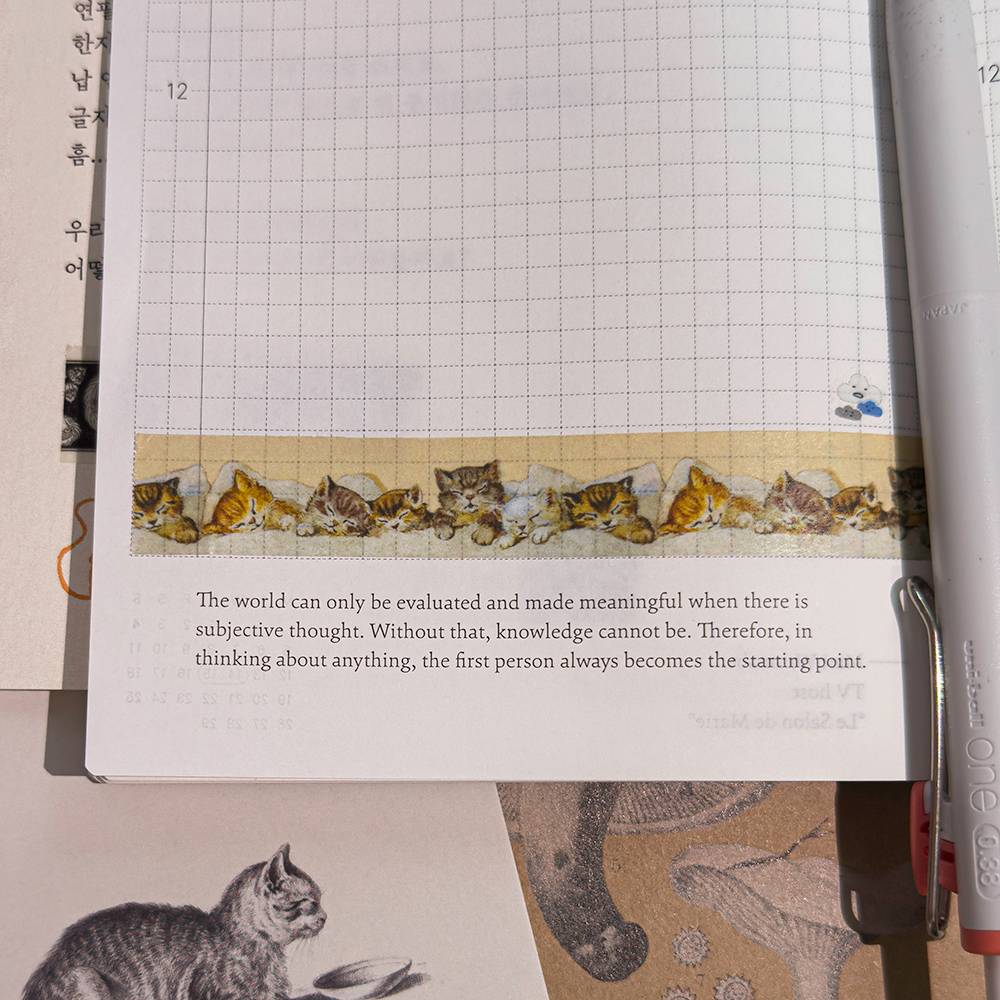 한
납
글
흠..
우리
12
12
The world can only be evaluated and made meaningful when there is
subjective thought. Without that, knowledge cannot be. Therefore, in
thinking about anything, the first person always becomes the starting point.
TV host
"Le Salon de Marie"
JAPAN
uni-ball one 0.38
7